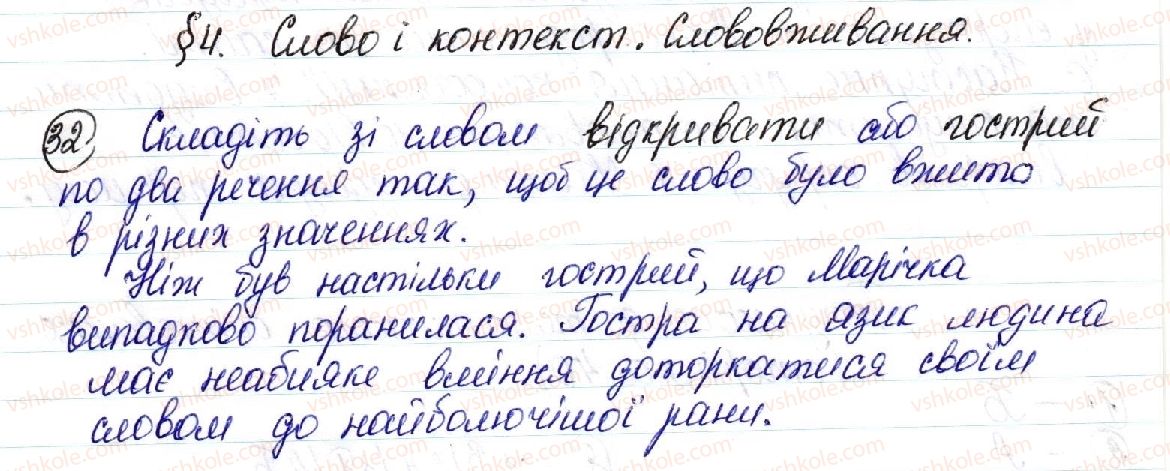 §4. Слово і контекст. Слововживання.
32. Складіть зі словом відкривати або гострий
по два речення так, щоб це слово було вжито
в різних значеннях.
Ніж був настільки гострий, що Марічка
випадково поранилася. Гостра на язик людина
має неабияке вміння доторкатися своїм
словом до найболючішої рани.